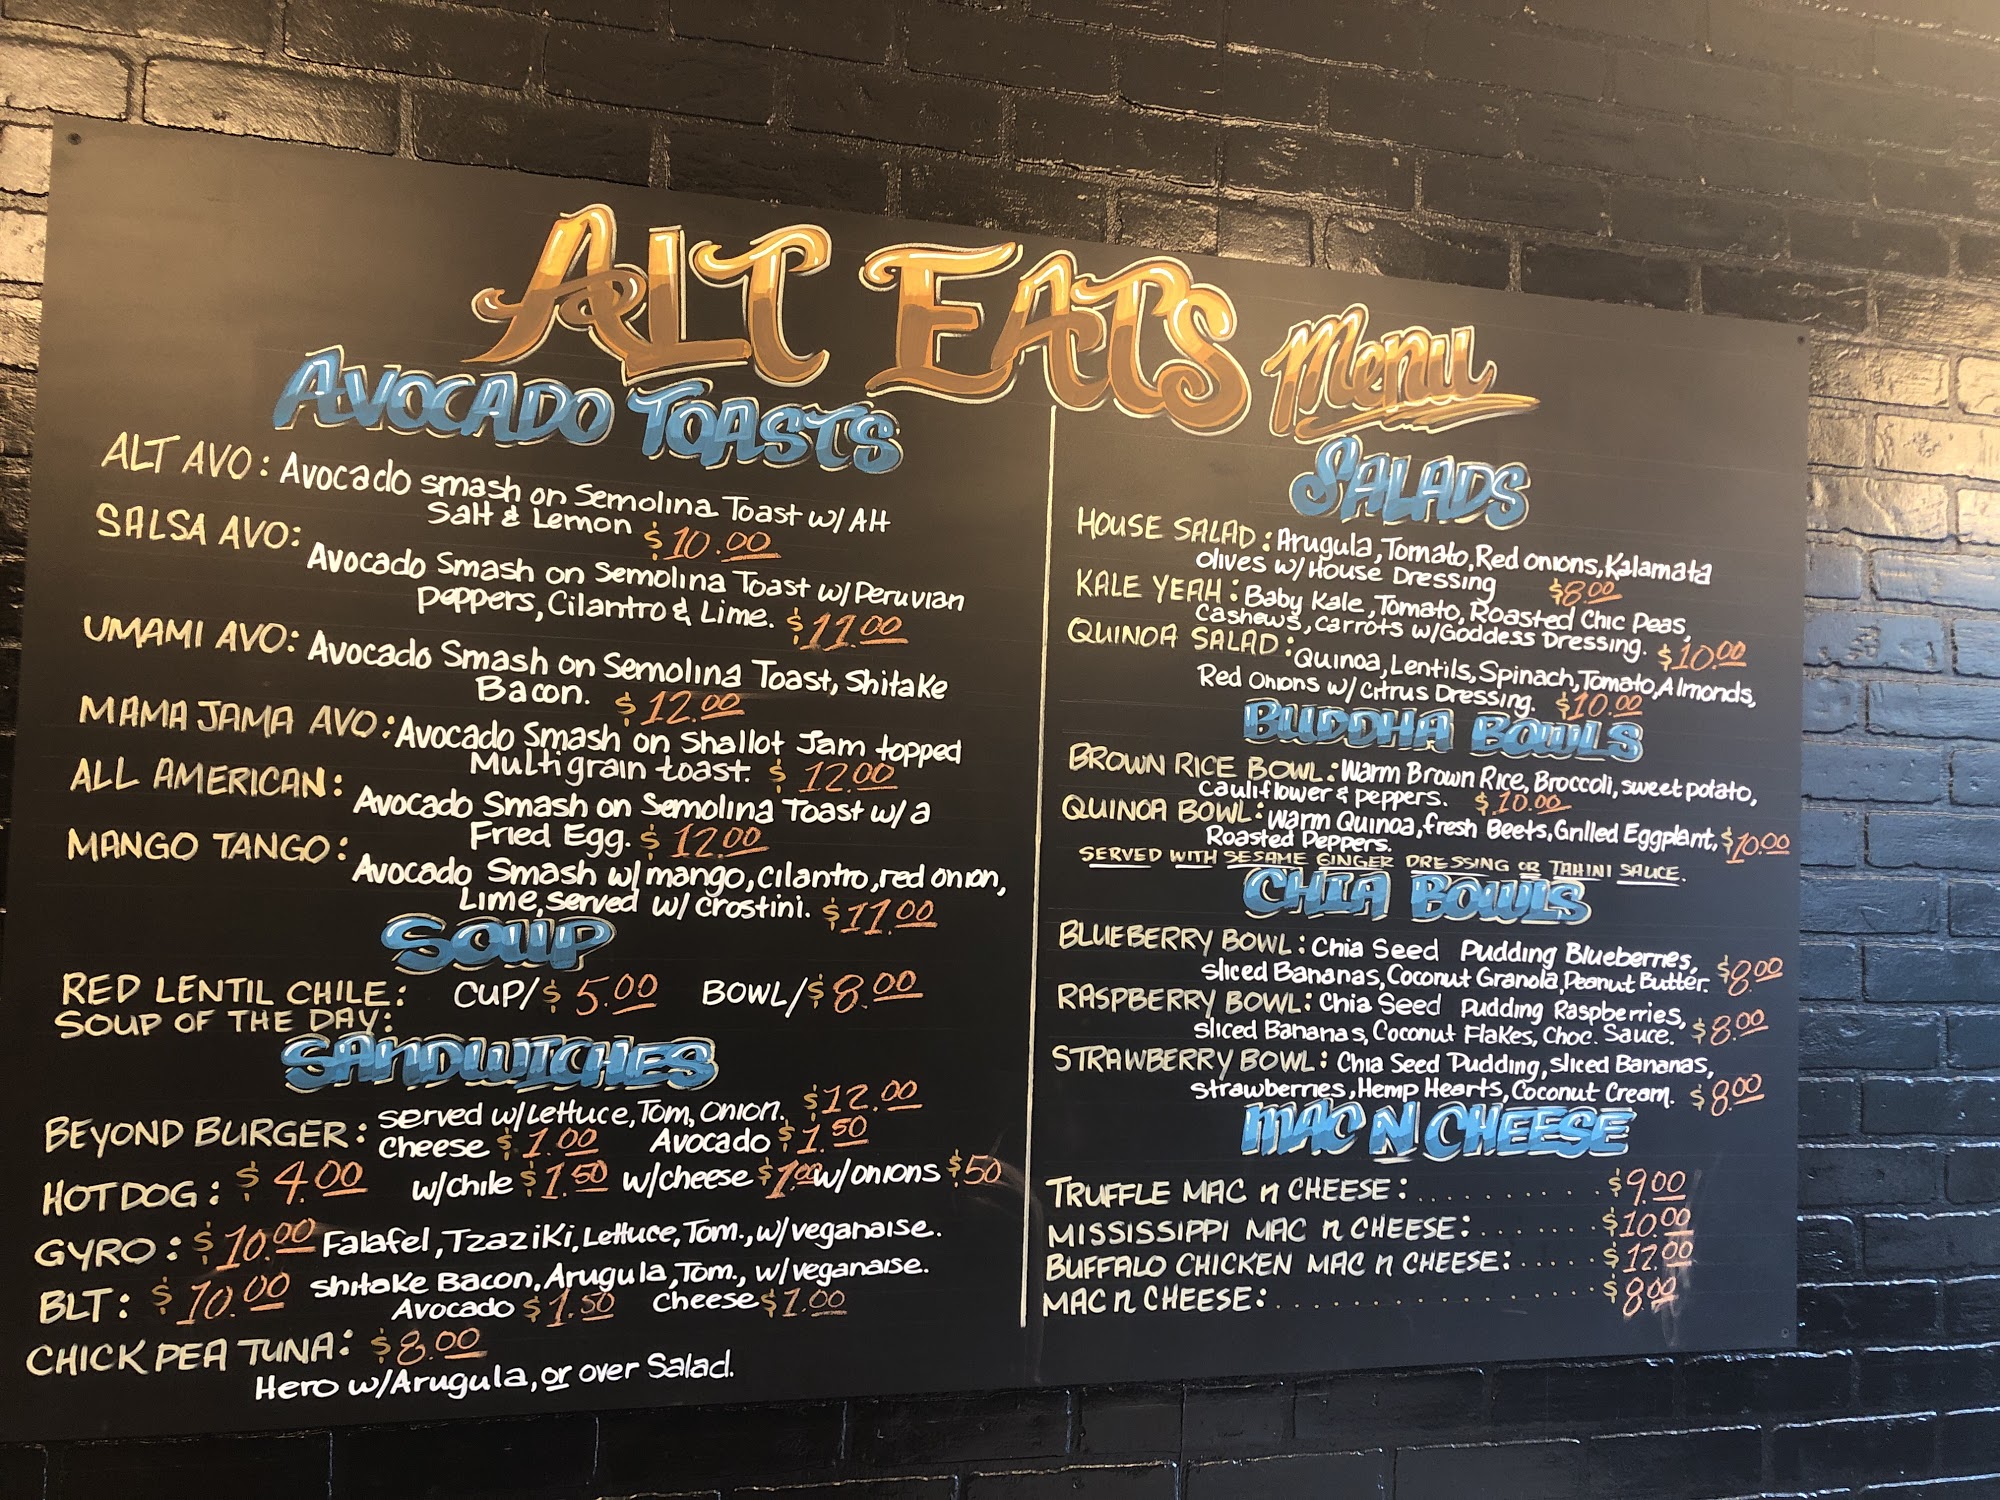 ALT EATS Menu
AVOCADO TOASTS
ALT AVO: Avocado smash on Semolina Toast w/ AH
Salt & Lemon $10.00
SALSA AVO:
Avocado Smash on Semolina Toast w/ Peruvian
Peppers, Cilantro & Lime. $11.00
UMAMI AVO: Avocado Smash on Semolina Toast, Shitake
Bacon. $12.00
MAMA JAMA AVO: Avocado Smash on Shallot Jam topped
Multigrain toast. $12.00
ALL AMERICAN: Avocado Smash on Semolina Toast w/ a
Fried Egg. $12.00
MANGO TANGO: Avocado Smash w/ mango, cilantro, red onion,
Lime, served w/ crostini. $11.00
SOUP
RED LENTIL CHILE: CUP/$5.00 BOWL/$8.00
SOUP OF THE DAY:
SANDWITCHES
BEYOND BURGER: served w/ Lettuce, Tom, Onion. $12.00
Cheese $1.00 Avocado $1.50
HOT DOG: $4.00 w/chile $1.50 w/cheese $1.00 w/onions $.50
GYRO: $10.00 Falafel, Tzaziki, Lettuce, Tom., w/ veganaise.
BLT: $10.00 Shitake Bacon, Arugula, Tom., w/ veganaise.
Avocado $1.50 Cheese $1.00
CHICK PEA TUNA: $8.00
Hero w/ Arugula, or over Salad.
SALADS
HOUSE SALAD: Arugula, Tomato, Red onions, Kalamata
olives w/ House Dressing $8.00
KALE YEAH: Baby Kale, Tomato, Roasted Chic Peas,
Cashews, Carrots w/ Goddess Dressing. $10.00
QUINOA SALAD: Quinoa, Lentils, Spinach, Tomato, Almonds,
Red Onions w/ Citrus Dressing. $10.00
BUDDHA BOWLS
BROWN RICE BOWL: Warm Brown Rice, Broccoli, sweet potato,
Cauliflower & peppers. $10.00
QUINOA BOWL: Warm Quinoa, fresh Beets, Grilled Eggplant, $10.00
Roasted Peppers.
SERVED WITH SESAME GINGER DRESSING OR TAHINI SAUCE.
CHIA BOWLS
BLUEBERRY BOWL: Chia Seed Pudding Blueberries,
sliced Bananas, Coconut Granola, Peanut Butter. $8.00
RASPBERRY BOWL: Chia Seed Pudding Raspberries,
sliced Bananas, Coconut Flakes, Choc. Sauce. $8.00
STRAWBERRY BOWL: Chia Seed Pudding, sliced Bananas,
strawberries, Hemp Hearts, Coconut Cream. $8.00
MAC N CHEESE
TRUFFLE MAC n CHEESE:.......... $9.00
MISSISSIPPI MAC n CHEESE:...... $10.00
BUFFALO CHICKEN MAC n CHEESE:..... $12.00
MAC n CHEESE:.................. $8.00